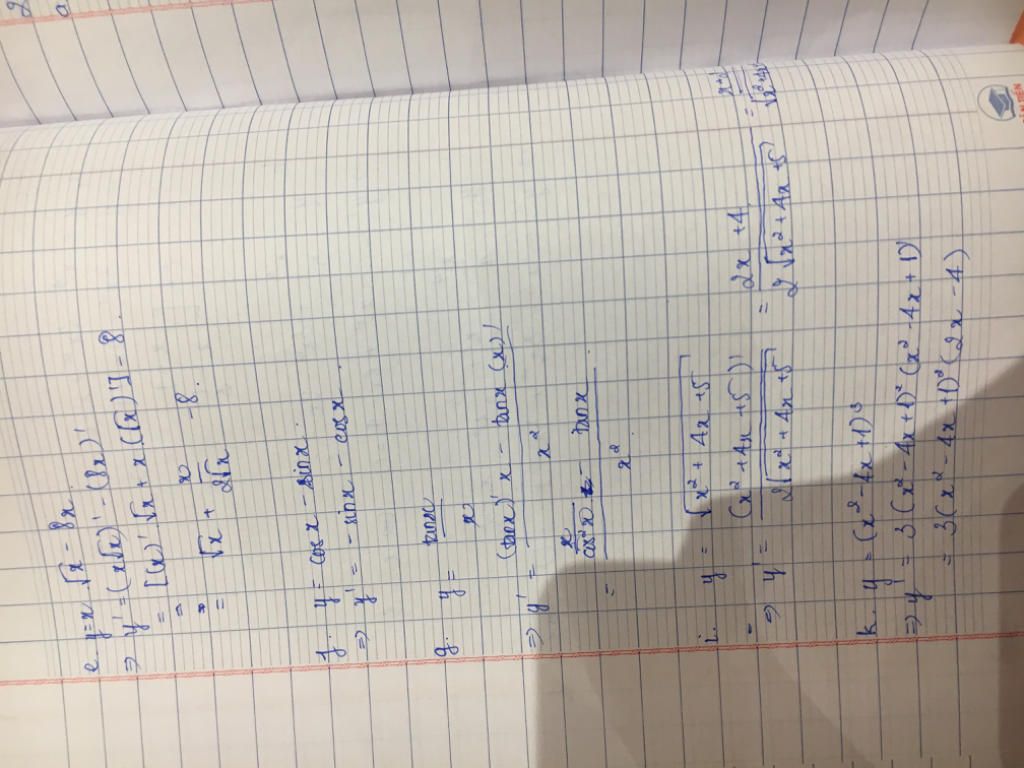 e. y = x.√x - 8x
⇒ y' = (x√x)' - (8x)'
= [(x)'.√x + x.(√x)'] - 8.
= √x + x/(2√x) - 8.
f. y = cos x - sin x.
⇒ y' = - sin x - cos x.
g. y = tan x / x
⇒ y' = ((tan x)' x - tan x (x)') / x²
= (x/cos²x - tan x) / x²
i. y = √(x² + 4x + 5)
⇒ y' = (x² + 4x + 5)' / (2√(x² + 4x + 5)) = (2x + 4) / (2√(x² + 4x + 5)) =
k. y = (x² - 4x + 1)³
⇒ y' = 3(x² - 4x + 1)² (x² - 4x + 1)'
= 3(x² - 4x + 1)² (2x - 4)